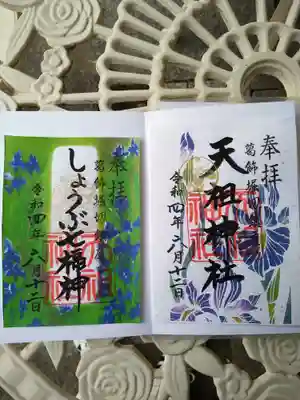 奉拝
天祖神社
葛飾堀切
令和四年六月十二日
奉拝
しょうぶ七福神
葛飾堀切
令和四年六月十二日